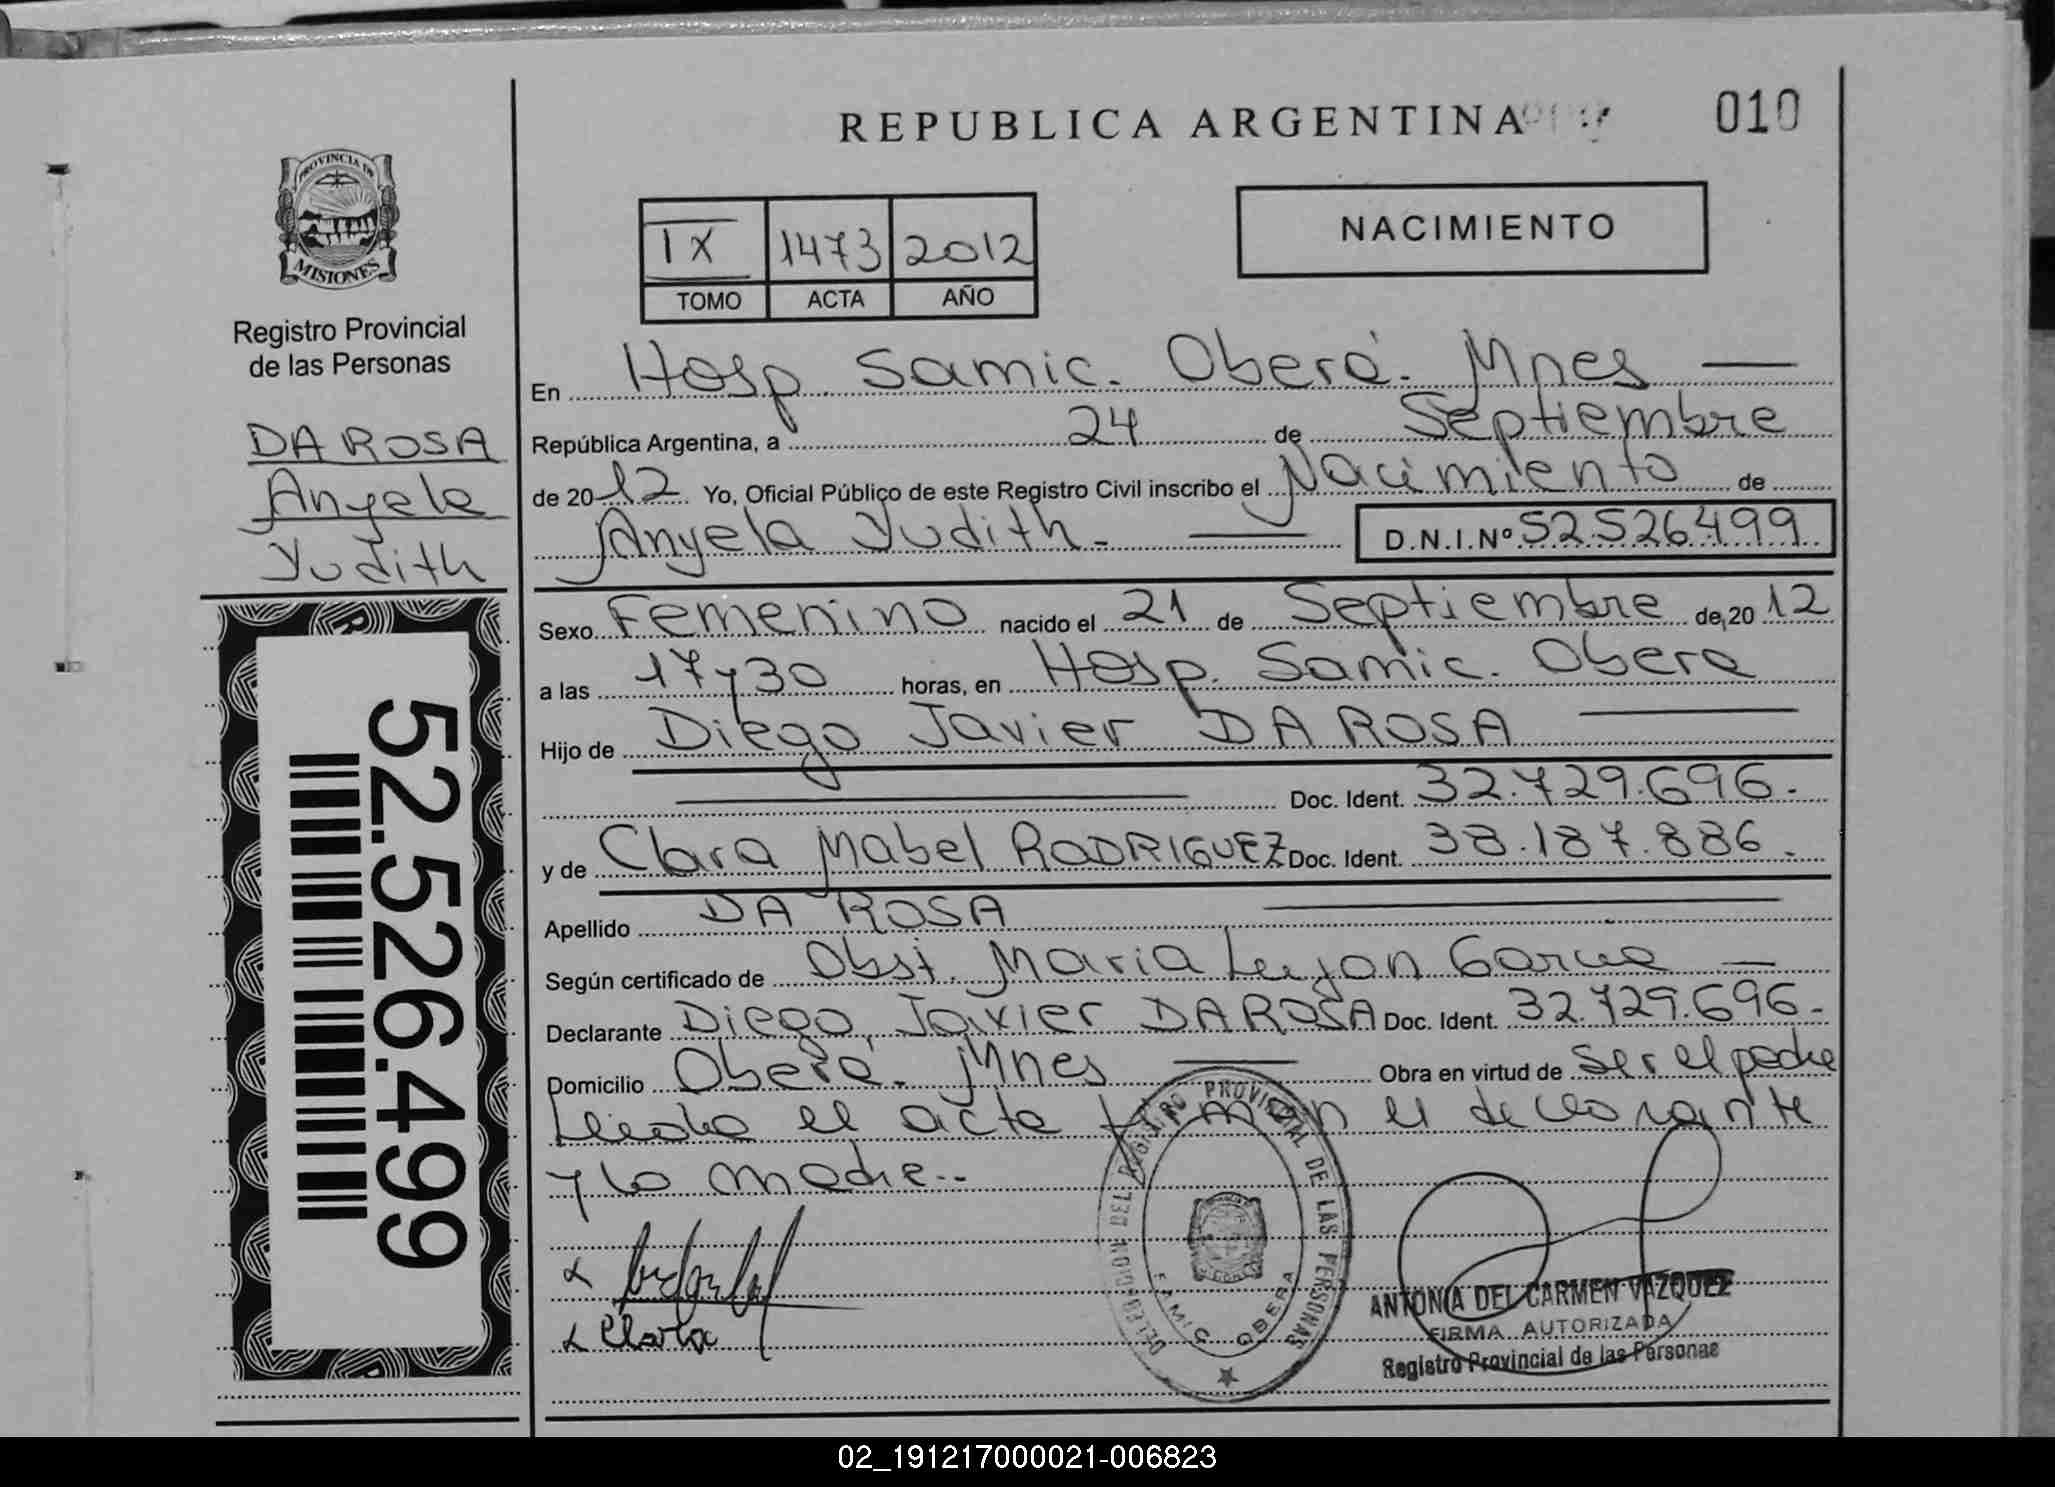 REPUBLICA ARGENTINA
010
PROVINCIA DE
MISIONES
Registro Provincial
de las Personas
DA ROSA
Anyela
Yudith
52.526.499
IX 1473 2012
TOMO ACTA AÑO
NACIMIENTO
En Hosp. Samic. Oberá. Mnes
República Argentina, a 24 de Septiembre
de 2012 Yo, Oficial Público de este Registro Civil inscribo el Nacimiento de
Anyela Yudith.- D.N.I.Nº 52.526.499
Sexo Femenino nacido el 21 de Septiembre de 2012
a las 17 y 30 horas, en Hosp. Samic. Obera
Hijo de Diego Javier DA ROSA
Doc. Ident. 32.729.696.-
y de Clara Mabel RODRIGUEZ Doc. Ident. 38.187.886.-
Apellido DA ROSA
Según certificado de Obst. Maria Lujan Garcia
Declarante Diego Javier DA ROSA Doc. Ident. 32.729.696.-
Domicilio Oberá. Mnes Obra en virtud de Ser el padre
Leida el acta firman el declarante
y la madre..
Clara
DELEGACION DEL REGISTRO PROVINCIAL DE LAS PERSONAS
SAMIC OBERA
ANTONIA DEL CARMEN VAZQUEZ
FIRMA AUTORIZADA
Registro Provincial de las Personas
02_191217000021-006823